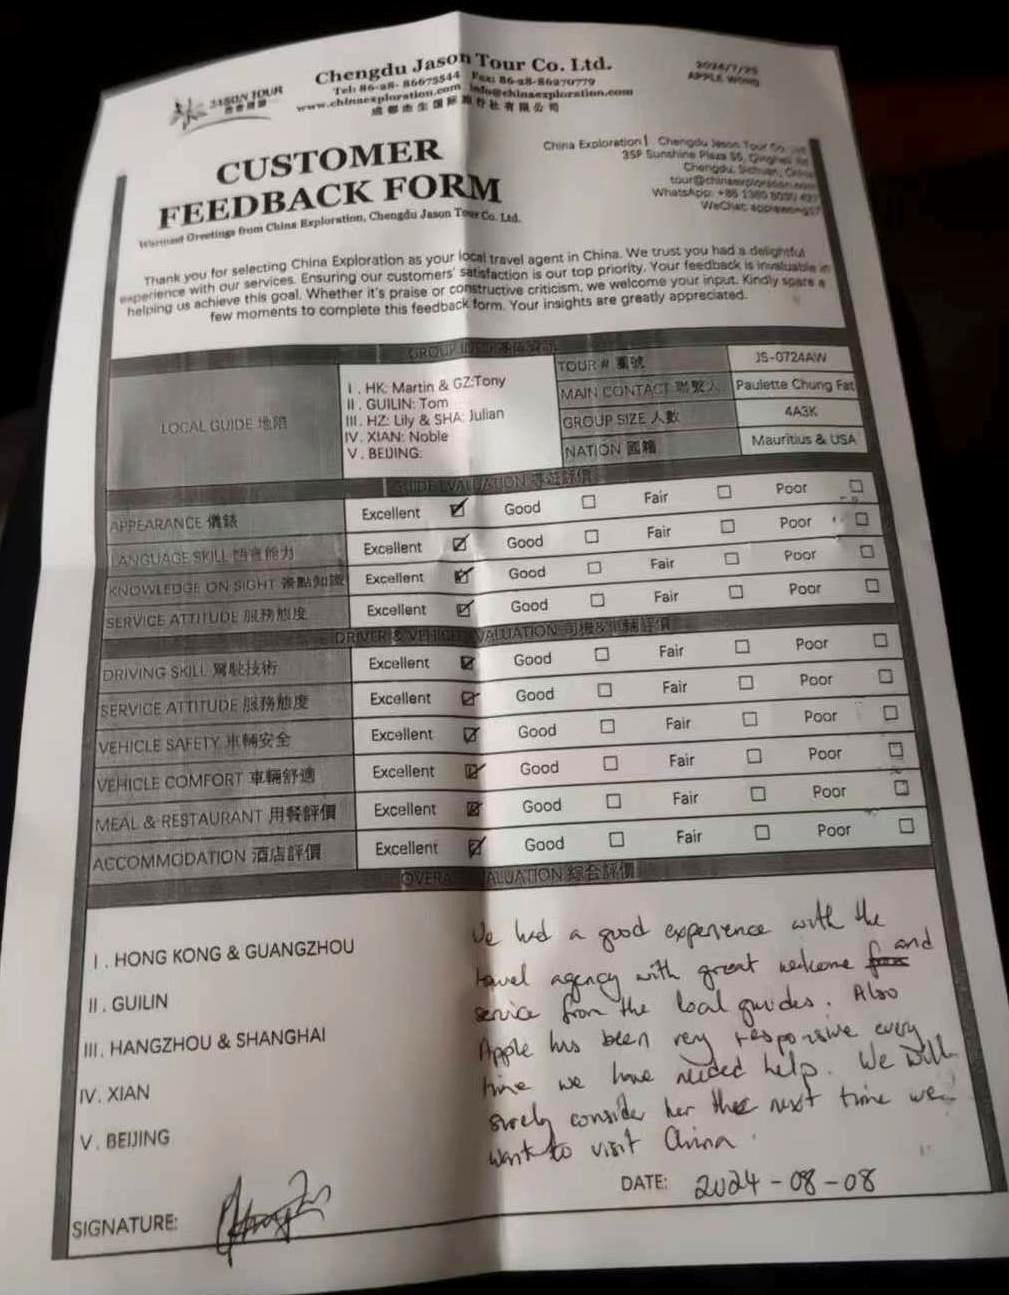 Chengdu Jason Tour Co. Ltd.
Tel: 86-28- 86675544 Fax: 86-28-86270779
www.chinaexploration.com info@chinaexploration.com
JASON TOUR
2024/7/25
APPLE WONG
China Exploration | Chengdu Jason Tour Co.
35F Sunshine Plaza
Chengdu, Sichuan, China
tour@chinaexploration.com
WhatsApp: +86
WeChat:
CUSTOMER
FEEDBACK FORM
Warmest Greetings from China Exploration, Chengdu Jason Tour Co. Ltd.
Thank you for selecting China Exploration as your local travel agent in China. We trust you had a delightful
experience with our services. Ensuring our customers' satisfaction is our top priority. Your feedback is invaluable in
helping us achieve this goal. Whether it's praise or constructive criticism, we welcome your input. Kindly spare a
few moments to complete this feedback form. Your insights are greatly appreciated.
LOCAL GUIDE 地陪
I . HK: Martin & GZ:Tony
II . GUILIN: Tom
III. HZ: Lily & SHA: Julian
IV. XIAN: Noble
V . BEIJING:
TOUR # 團號 JS-0724AW
MAIN CONTACT 聯繫人 Paulette Chung Fat
GROUP SIZE 人數 4A3K
NATION 國籍 Mauritius & USA
GUIDE EVALUATION 導遊評價
APPEARANCE 儀錶 Excellent Good Fair Poor
LANGUAGE SKILL 語言能力 Excellent Good Fair Poor
KNOWLEDGE ON SIGHT 景點知識 Excellent Good Fair Poor
SERVICE ATTITUDE 服務態度 Excellent Good Fair Poor
DRIVER & VEHICLE EVALUATION 司機&車輛評價
DRIVING SKILL 駕駛技術 Excellent Good Fair Poor
SERVICE ATTITUDE 服務態度 Excellent Good Fair Poor
VEHICLE SAFETY 車輛安全 Excellent Good Fair Poor
VEHICLE COMFORT 車輛舒適 Excellent Good Fair Poor
MEAL & RESTAURANT 用餐評價 Excellent Good Fair Poor
ACCOMMODATION 酒店評價 Excellent Good Fair Poor
OVERALL EVALUATION 綜合評價
I . HONG KONG & GUANGZHOU
II . GUILIN
III. HANGZHOU & SHANGHAI
IV. XIAN
V . BEIJING
We had a good experience with the
travel agency with great welcome and
service from the local guides. Also
Apple has been very responsive every
time we have needed help. We will
surely consider her the next time we
want to visit China.
DATE: 2024-08-08
SIGNATURE: